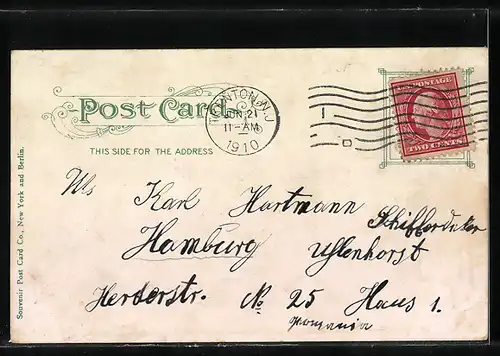 POST CARD
THIS SIDE FOR THE ADDRESS
TRENTON, N.J.
JUN 21
11-AM
1910
1
D
U.S. POSTAGE
TWO CENTS
Souvenir Post Card Co., New York and Berlin.
Karl Hartmann
Hamburg Uhlenhorst
Herderstr. No 25 Haus 1.